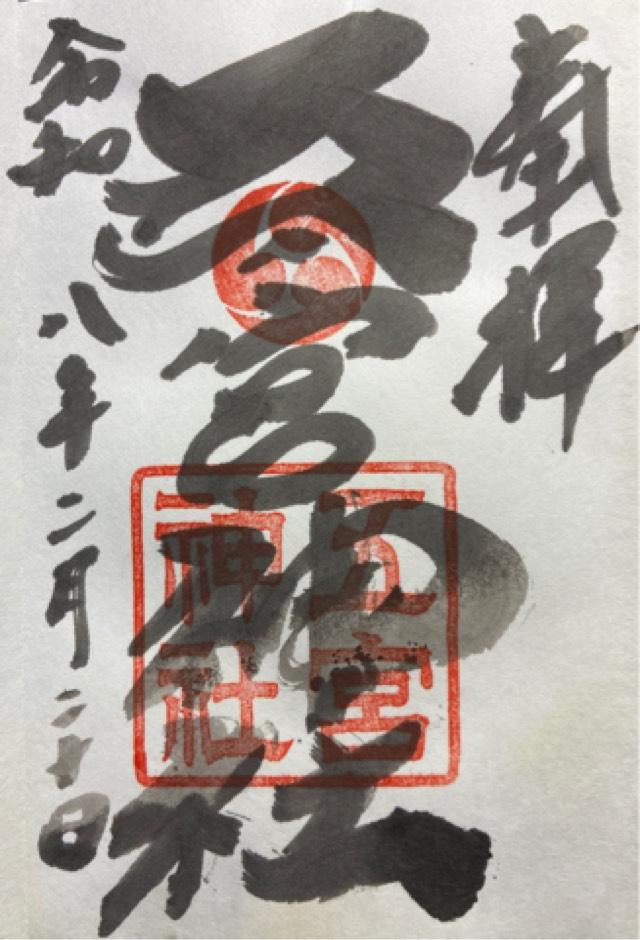 奉拝
五宮神社
五宮
神社
令和八年二月二十日